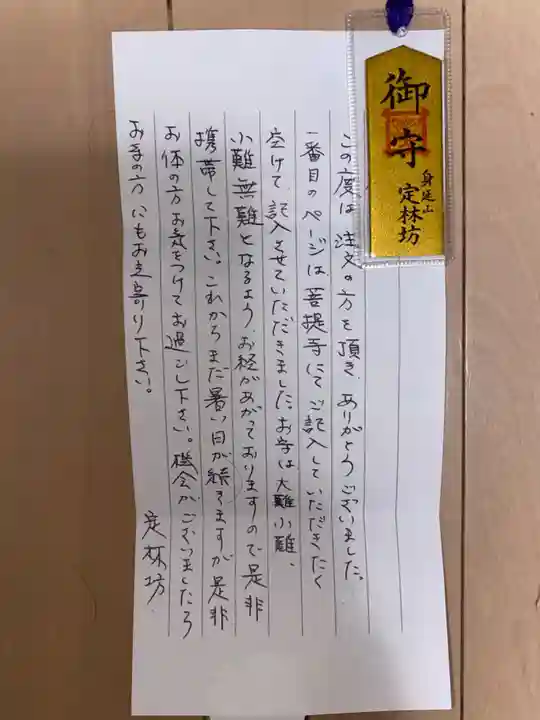 御守
身延山
定林坊
この度は注文の方を頂き、ありがとうございました。
一番目のページは菩提寺にてご記入していただきたく
空けて記入させていただきました。お守は大難小難、
小難無難となるよう、お経があがっておりますので是非
携帯して下さい。これからまだ暑い日が続きますが是非
お体の方お気をつけてお過ごし下さい。機会がございましたら
お寺の方にもお立寄り下さい。
定林坊